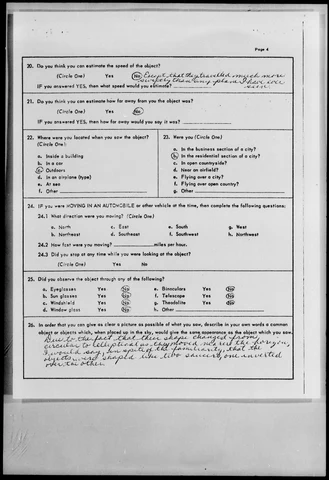 Page 4
20. Do you think you can estimate the speed of the object?
(Circle One) Yes No Except that they travelled much more
swiftly than any plane I have ever
IF you answered YES, then what speed would you estimate? seen
21. Do you think you can estimate how far away from you the object was?
(Circle One) Yes No
IF you answered YES, then how far away would you say it was?
22. Where were you located when you saw the object?
(Circle One):
a. Inside a building
b. In a car
c. Outdoors
d. In an airplane (type)
e. At sea
f. Other
23. Were you (Circle One)
a. In the business section of a city?
b. In the residential section of a city?
c. In open countryside?
d. Near an airfield?
e. Flying over a city?
f. Flying over open country?
g. Other
24. IF you were MOVING IN AN AUTOMOBILE or other vehicle at the time, then complete the following questions:
24.1 What direction were you moving? (Circle One)
a. North c. East e. South g. West
b. Northeast d. Southeast f. Southwest h. Northwest
24.2 How fast were you moving? miles per hour.
24.3 Did you stop at any time while you were looking at the object?
(Circle One) Yes No
25. Did you observe the object through any of the following?
a. Eyeglasses Yes No e. Binoculars Yes No
b. Sun glasses Yes No f. Telescope Yes No
c. Windshield Yes No g. Theodolite Yes No
d. Window glass Yes No h. Other
26. In order that you can give as clear a picture as possible of what you saw, describe in your own words a common
object or objects which, when placed up in the sky, would give the same appearance as the object which you saw.
Due to the fact that their shape changed from
circular to elliptical as they moved nearer the horizon,
I would say, in spite of the familiarity, that the
objects were shaped like two saucers, one inverted
over the other.